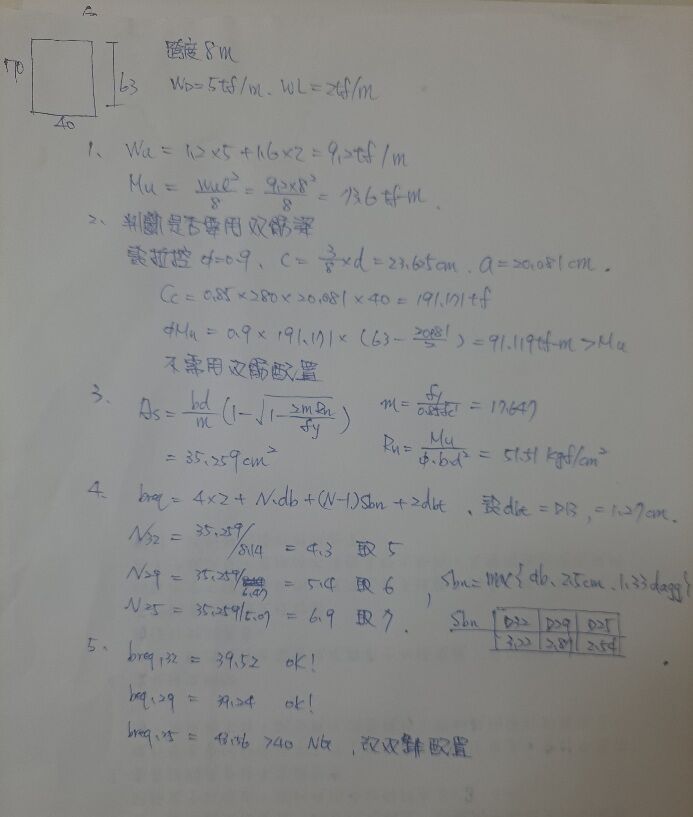 70
63
40
跨度8m
WD=5tf/m、WL=2tf/m
1、Wu = 1.2×5+1.6×2 = 9.2tf/m
Mu = wul²/8 = 9.2×8²/8 = 73.6 tf-m.
2、判斷是否需用双筋梁
設拉控 φ=0.9、C = 3/8×d = 23.625cm、a = 20.081cm.
Cc = 0.85×280×20.081×40 = 191.171tf
φMn = 0.9×191.171×(63-20.081/2) = 91.119tf-m > Mu
不需用双筋配置
3、As = bd/m (1-√(1-2mRn/fy)) m = fy/0.85fc' = 17.647
= 35.259cm² Rn = Mu/φ.bd² = 51.51 kgf/cm²
4、breq = 4×2 + N.db + (N-1)Sbn + 2dbt、設dbt = D13, = 1.27cm.
N32 = 35.259/8.14 = 4.3 取5
N29 = 35.259/6.47 = 5.4 取6, Sbn = max{db、2.5cm、1.33dagg}
N25 = 35.259/5.07 = 6.9 取7. Sbn D32 D29 D25
3.22 2.87 2.54
5、breq,32 = 39.52 ok!
breq,29 = 39.24 ok!
breq,25 = 43.56 >40 NG、改双排配置